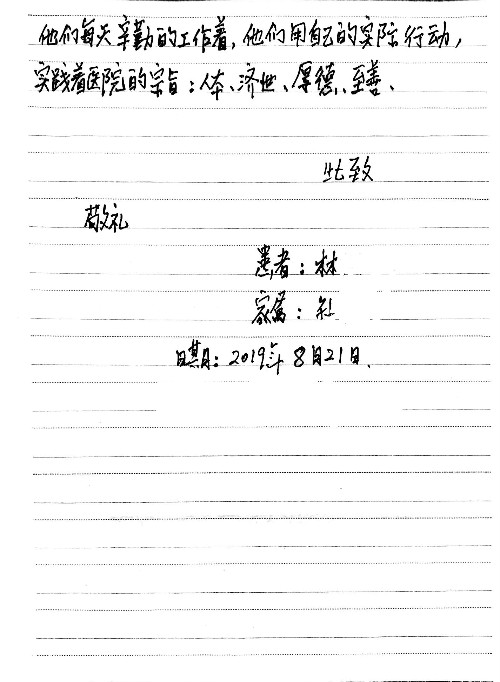 他们每天辛勤的工作着，他们用自己的实际行动，
实践着医院的宗旨：人本、济世、厚德、至善、
此致
敬礼
患者：林
家属：
日期：2019年8月21日.